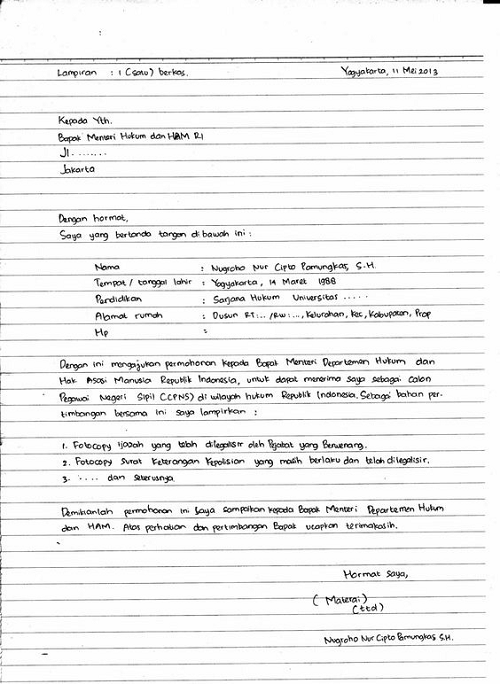 Lampiran : 1 (satu) berkas. Yogyakarta, 11 Mei 2013
Kepada Yth.
Bapak Menteri Hukum dan HAM RI
Jl. .......
Jakarta
Dengan hormat,
Saya yang bertanda tangan dibawah ini :
Nama : Nugroho Nur Cipto Pamungkas, S.H.
Tempat / tanggal lahir : Yogyakarta, 14 Maret 1988
Pendidikan : Sarjana Hukum Universitas .....
Alamat rumah : Dusun RT:... /RW:..., Kelurahan, Kec, Kabupaten, Prop
Hp :
Dengan ini mengajukan permohonan kepada Bapak Menteri Departemen Hukum dan
Hak Asasi Manusia Republik Indonesia, untuk dapat menerima saya sebagai calon
Pegawai Negeri Sipil (CPNS) di wilayah hukum Republik Indonesia. Sebagai bahan per-
timbangan bersama ini saya lampirkan :
1. Fotocopy Ijasah yang telah dilegalisir oleh Pejabat yang Berwenang.
2. Fotocopy Surat Keterangan Kepolisian yang masih berlaku dan telah dilegalisir.
3. .... dan seterusnya
Demikianlah permohonan ini Saya sampaikan kepada Bapak Menteri Departemen Hukum
dan HAM. Atas perhatian dan pertimbangan Bapak ucapkan terimakasih.
Hormat saya,
(Materai)
(ttd)
Nugroho Nur Cipto Pamungkas S.H.